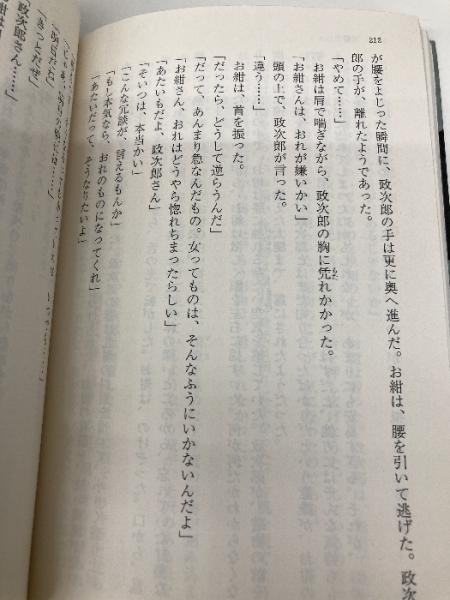 212
が腰をよじった瞬間に、政次郎の手は更に奥へ進んだ。お紺は、腰を引いて逃げた。政次
郎の手が、離れたようであった。
「やめて……」
お紺は肩で喘ぎながら、政次郎の胸に凭れかかった。
「お紺さんは、おれが嫌いかい」
頭の上で、政次郎が言った。
「違う……」
お紺は、首を振った。
「だったら、どうして逆らうんだ」
「だって、あんまり急なんだもの。女ってものは、そんなふうにいかないんだよ」
「お紺さん、おれはどうやら惚れちまったらしい」
「あたいもだよ、政次郎さん」
「そいつは、本当かい」
「こんな冗談が、言えるもんか」
「もし本気なら、おれのものになってくれ」
「あたいだって、そうなりたいよ」
「きっとだぜ」
「政次郎さん……」